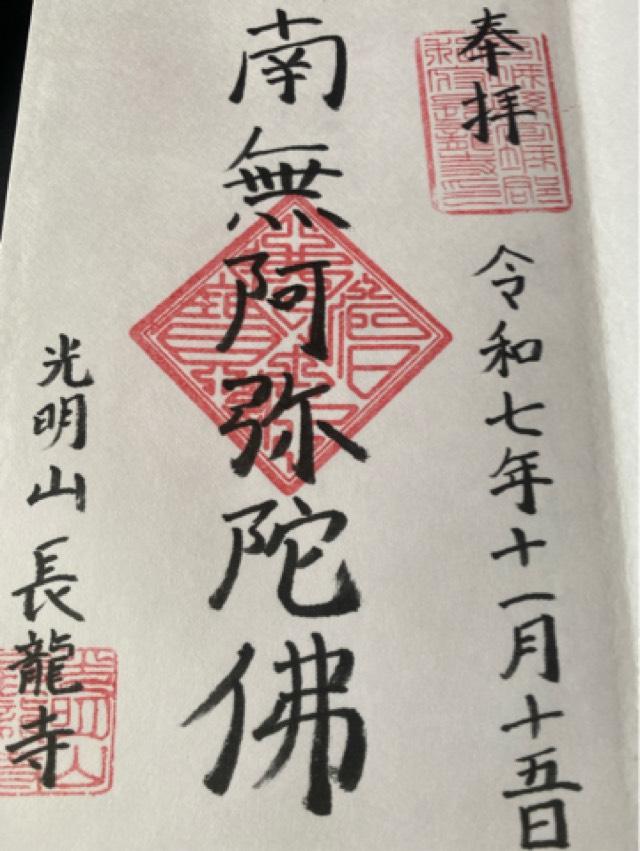 奉拝
令和七年十一月十五日
南無阿弥陀佛
光明山長龍寺